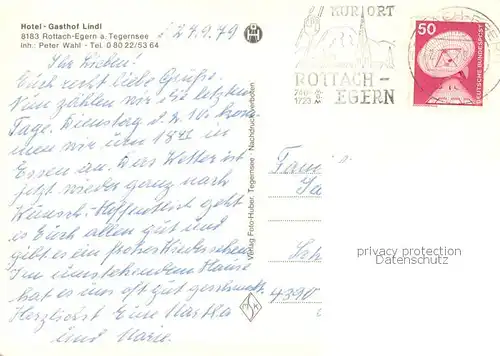 Hotel - Gasthof Lindl
8183 Rottach-Egern a. Tegernsee
Inh.: Peter Wahl - Tel. 0 80 22/53 64
d 29.9.79
Ihr Lieben!
Euch recht liebe Grüße.
Nun zählen wir die letzten
Tage. Dienstag d. 2. 10. kom
men wir um 18 in
Essen an. Das Wetter ist
jetzt wieder ganz nach
Wunsch. Hoffentlich geht
es Euch allen gut und
gibt es ein frohes Wiedersehen.
Im umstehenden Hause
hat es uns oft gut geschmeckt.
Herzlichst Eure Martha
und Marie.
Verlag Foto-Huber, Tegernsee - Nachdruck verboten
KURORT
ROTTACH-
EGERN
740-
1723 m
50
DEUTSCHE BUNDESPOST
Fam
4390
privacy protection
Datenschutz